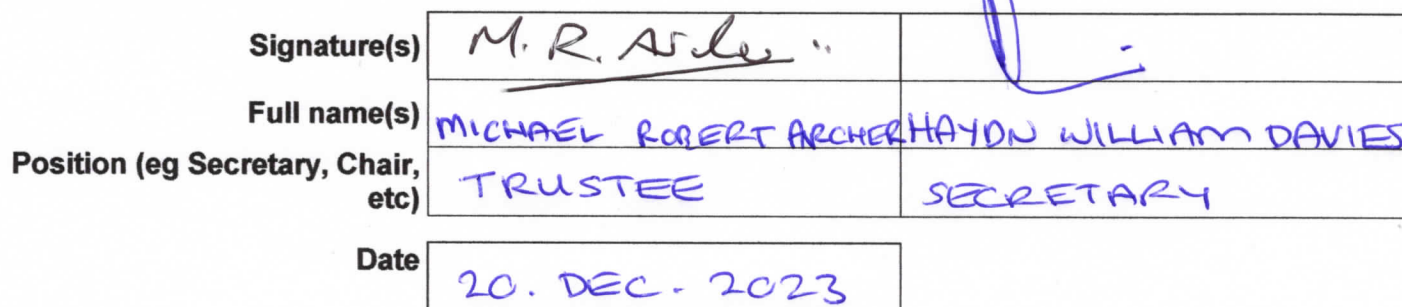 Signature(s) M. R. Archer
Full name(s) MICHAEL ROBERT ARCHER HAYDN WILLIAM DAVIES
Position (eg Secretary, Chair,
etc) TRUSTEE SECRETARY
Date 20. DEC. 2023